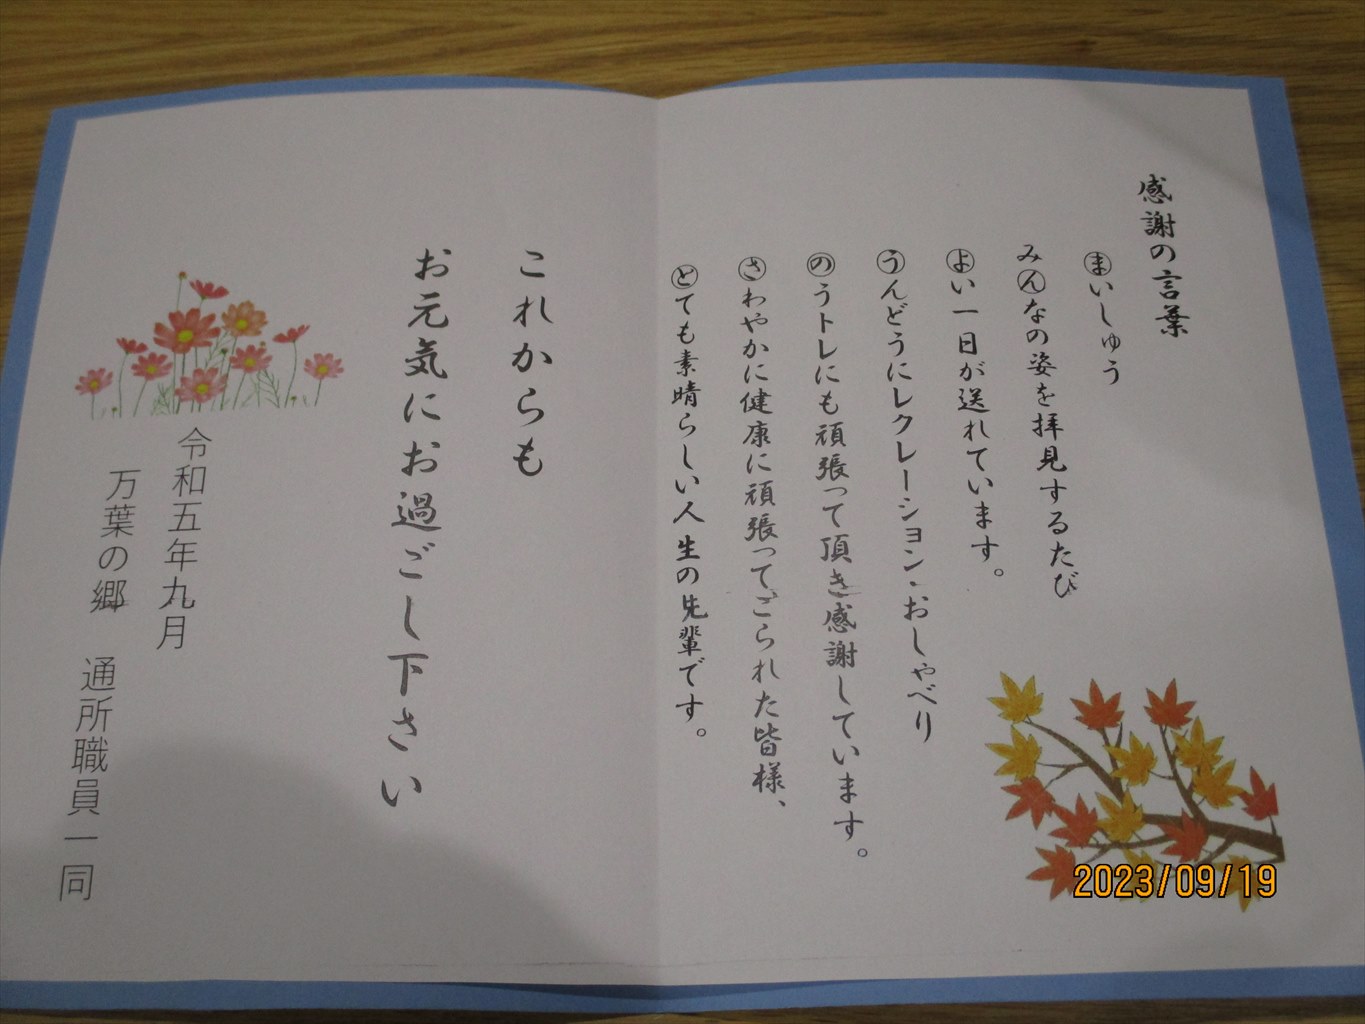 感謝の言葉
まいしゅう
みんなの姿を拝見するたび
よい一日が送れています。
うんどうにレクレーション・おしゃべり
のうトレにも頑張って頂き感謝しています。
さわやかに健康に頑張ってこられた皆様、
とても素晴らしい人生の先輩です。
これからも
お元気にお過ごし下さい
令和五年九月
万葉の郷 通所職員一同
2023/09/19